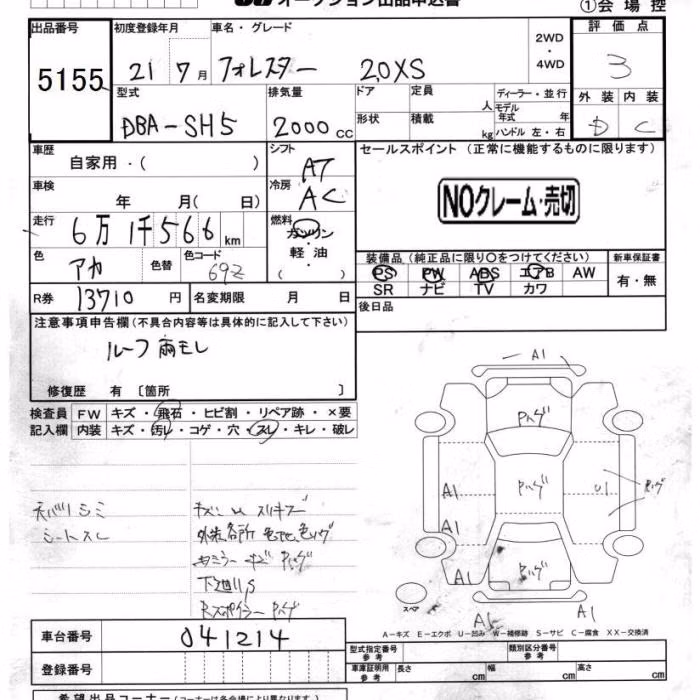 オークション出品申込書
①会場控
出品番号
5155
初度登録年月
21 7月
車名・グレード
フォレスター 2.0XS
2WD
・
4WD
評価点
3
型式
DBA-SH5
排気量
2000 cc
ドア
定員
人
ディーラー・並行
モデル年式 年
形状
積載
kg
ハンドル 左・右
外装 内装
D C
車歴
自家用・( )
シフト
AT
セールスポイント (正常に機能するものに限ります)
NOクレーム・売切
車検
年 月( 日)
冷房
AC
走行
6万1千566km
燃料
ガソリン
軽油
( )
色
アカ
色替
色コード
69Z
装備品 (純正品に限り〇をつけてください)
PS PW ABS エアB AW
SR ナビ TV カワ
新車保証書
有・無
R券 13710 円
名変期限 月 日
後日品
注意事項申告欄 (不具合内容等は具体的に記入して下さい)
ルーフ 雨モレ
修復歴 有 〔箇所 〕
検査員
記入欄
FW キズ・飛石・ヒビ割・リペア跡・×要
内装 キズ・汚レ・コゲ・穴・スレ・キレ・破レ
シミ
シートスレ
スリキズ
外装各所
下廻りS
A1
A1
A1
U1
A1
A1
スペア
A-キズ E-エクボ U-凹み W-補修跡 S-サビ C-腐食 XX-交換済
車台番号
041214
登録番号
型式指定番号
参考
類別区分番号
参考
車庫証明用
参考
長さ cm
幅 cm
高さ cm
希望出品コーナー (コーナーは会場により異なります)